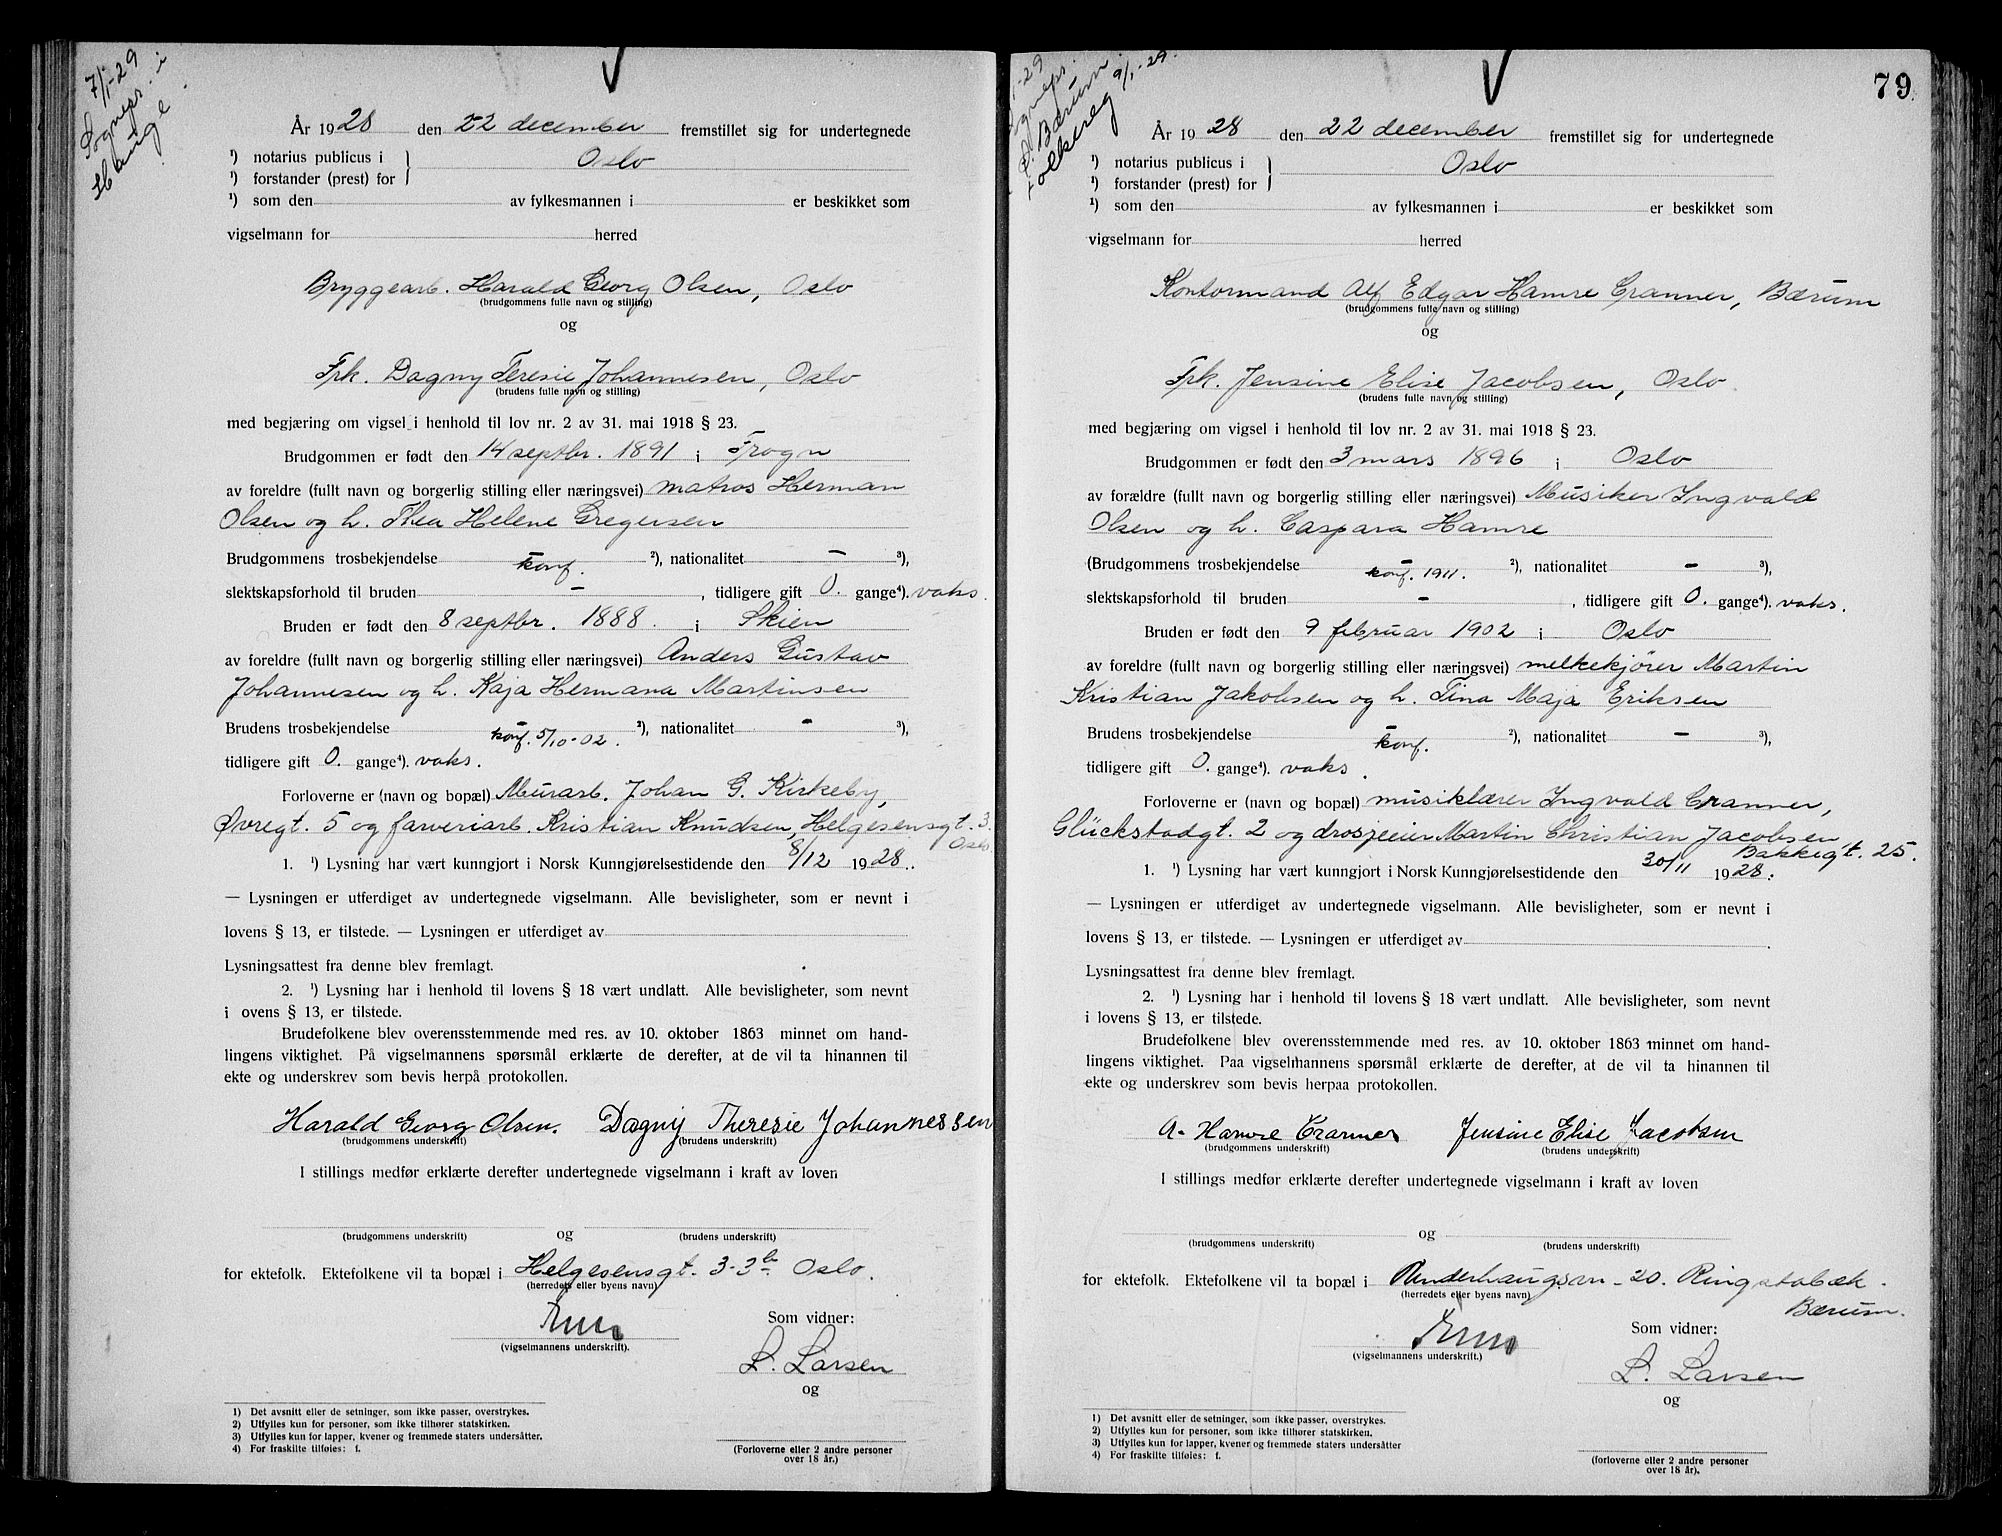 7/1-29
Sognepr. i
Hauge.
År 1928 den 22 december fremstillet sig for undertegnede
¹) notarius publicus i } Oslo
¹) forstander (prest) for
¹) som den av fylkesmannen i er beskikket som
vigselmann for herred
Bryggearb. Harald Georg Olsen, Oslo
(brudgommens fulle navn og stilling)
og
Frk. Dagny Teresie Johannesen, Oslo
(brudens fulle navn og stilling)
med begjæring om vigsel i henhold til lov nr. 2 av 31. mai 1918 § 23.
Brudgommen er født den 14 septbr. 1891 i Frogn
av foreldre (fullt navn og borgerlig stilling eller næringsvei) matros Herman
Olsen og h. Thea Helene Gregersen
Brudgommens trosbekjendelse konf. ²), nationalitet — ³),
slektskapsforhold til bruden —, tidligere gift 0. gange⁴). vaks.
Bruden er født den 8 septbr. 1888. i Skien
av foreldre (fullt navn og borgerlig stilling eller næringsvei) Anders Gustav
Johannesen og h. Kaja Hermana Martinsen
Brudens trosbekjendelse konf. 5/10-02. ²), nationalitet - ³),
tidligere gift 0. gange⁴). vaks.
Forloverne er (navn og bopæl) Murarb. Johan G. Kirkeby,
Øvregt. 5 og farveriarb. Kristian Knudsen, Helgesensgt. 3.
Oslo
1. ¹) Lysning har vært kunngjort i Norsk Kunngjørelsestidende den 8/12 1928..
— Lysningen er utferdiget av undertegnede vigselmann. Alle bevisligheter, som er nevnt i
lovens § 13, er tilstede. — Lysningen er utferdiget av
Lysningsattest fra denne blev fremlagt.
2. ¹) Lysning har i henhold til lovens § 18 vært undlatt. Alle bevisligheter, som nevnt
i ovens § 13, er tilstede.
Brudefolkene blev overensstemmende med res. av 10. oktober 1863 minnet om hand-
lingens viktighet. På vigselmannens spørsmål erklærte de derefter, at de vil ta hinannen til
ekte og underskrev som bevis herpå protokollen.
Harald Georg Olsen. Dagny Theresie Johannessen
(brudgommens underskrift) (brudens underskrift)
I stillings medfør erklærte derefter undertegnede vigselmann i kraft av loven
og
(brudgommens underskrift) (brudens underskrift)
for ektefolk. Ektefolkene vil ta bopæl i Helgesensgt. 3-3 Oslo.
(herredets eller byens navn)
(vigselmannens underskrift).
Som vidner:
L. Larsen
og
(Forloverne eller 2 andre personer
over 18 år.)
1) Det avsnitt eller de setninger, som ikke passer, overstrykes.
2) Utfylles kun for personer, som ikke tilhører statskirken.
3) Utfylles kun for lapper, kvener og fremmede staters undersåtter.
4) For fraskilte tilføies: f.
79
Sognepr.
Ø. Bærum
Folkereg 9/1-29.
År 1928 den 22 december fremstillet sig for undertegnede
¹) notarius publicus i } Oslo
¹) forstander (prest) for
¹) som den av fylkesmannen i er beskikket som
vigselmann for herred
Kontormand Alf Edgar Hamre Cranner, Bærum
(brudgommens fulle navn og stilling)
og
Frk. Jensine Elise Jacobsen, Oslo
(brudens fulle navn og stilling)
med begjæring om vigsel i henhold til lov nr. 2 av 31. mai 1918 § 23.
Brudgommen er født den 3 mars 1896 i Oslo
av forældre (fullt navn og borgerlig stilling eller næringsvei) Musiker Ingvald
Olsen og h. Caspara Hamre
(Brudgommens trosbekjendelse konf. 1911. ²), nationalitet - ³),
slektskapsforhold til bruden -, tidligere gift 0. gange⁴). vaks.
Bruden er født den 9 februar 1902 i Oslo
av foreldre (fullt navn og borgerlig stilling eller næringsvei) melkekjører Martin
Kristian Jakobsen og h. Tina Maja Eriksen
Brudens trosbekjendelse konf. ²), nationalitet — ³),
tidligere gift 0. gange⁴). vaks.
Forloverne er (navn og bopæl) musiklærer Ingvald Cranner,
Glückstadgt. 2 og drosjeeier Martin Christian Jacobsen
Bakkegt. 25.
1. ¹) Lysning har vært kunngjort i Norsk Kunngjørelsestidende den 30/11 1928.
— Lysningen er utferdiget av undertegnede vigselmann. Alle bevisligheter, som er nevnt i
lovens § 13, er tilstede. — Lysningen er utferdiget av
Lysningsattest fra denne blev fremlagt.
2. ¹) Lysning har i henhold til lovens § 18 vært undlatt. Alle bevisligheter, som nevnt
i lovens § 13, er tilstede.
Brudefolkene blev overensstemmende med res. av 10. oktober 1863 minnet om hand-
lingens viktighet. Paa vigselmannens spørsmål erklærte de derefter, at de vil ta hinannen til
ekte og underskrev som bevis herpaa protokollen.
A. Hamre Cranner Jensine Elise Jacobsen
(brudgommens underskrift) (brudens underskrift)
I stillings medfør erklærte derefter undertegnede vigselmann i kraft av loven
og
(brudgommens underskrift) (brudens underskrift)
for ektefolk. Ektefolkene vil ta bopæl i Ringstabæk.
Bærum.
(herredets eller byens navn)
(vigselmannens underskrift.)
Som vidner:
L. Larsen
og
(forloverne eller 2 andre personer
over 18 år).
1) Det avsnitt eller de setninger, som ikke passer, overstrykes.
2) Utfylles kun for personer, som ikke tilhører statskirken.
3) Utfylles kun for lapper, kvener og fremmede staters undersåtter
4) For fraskilte tilføies: f.